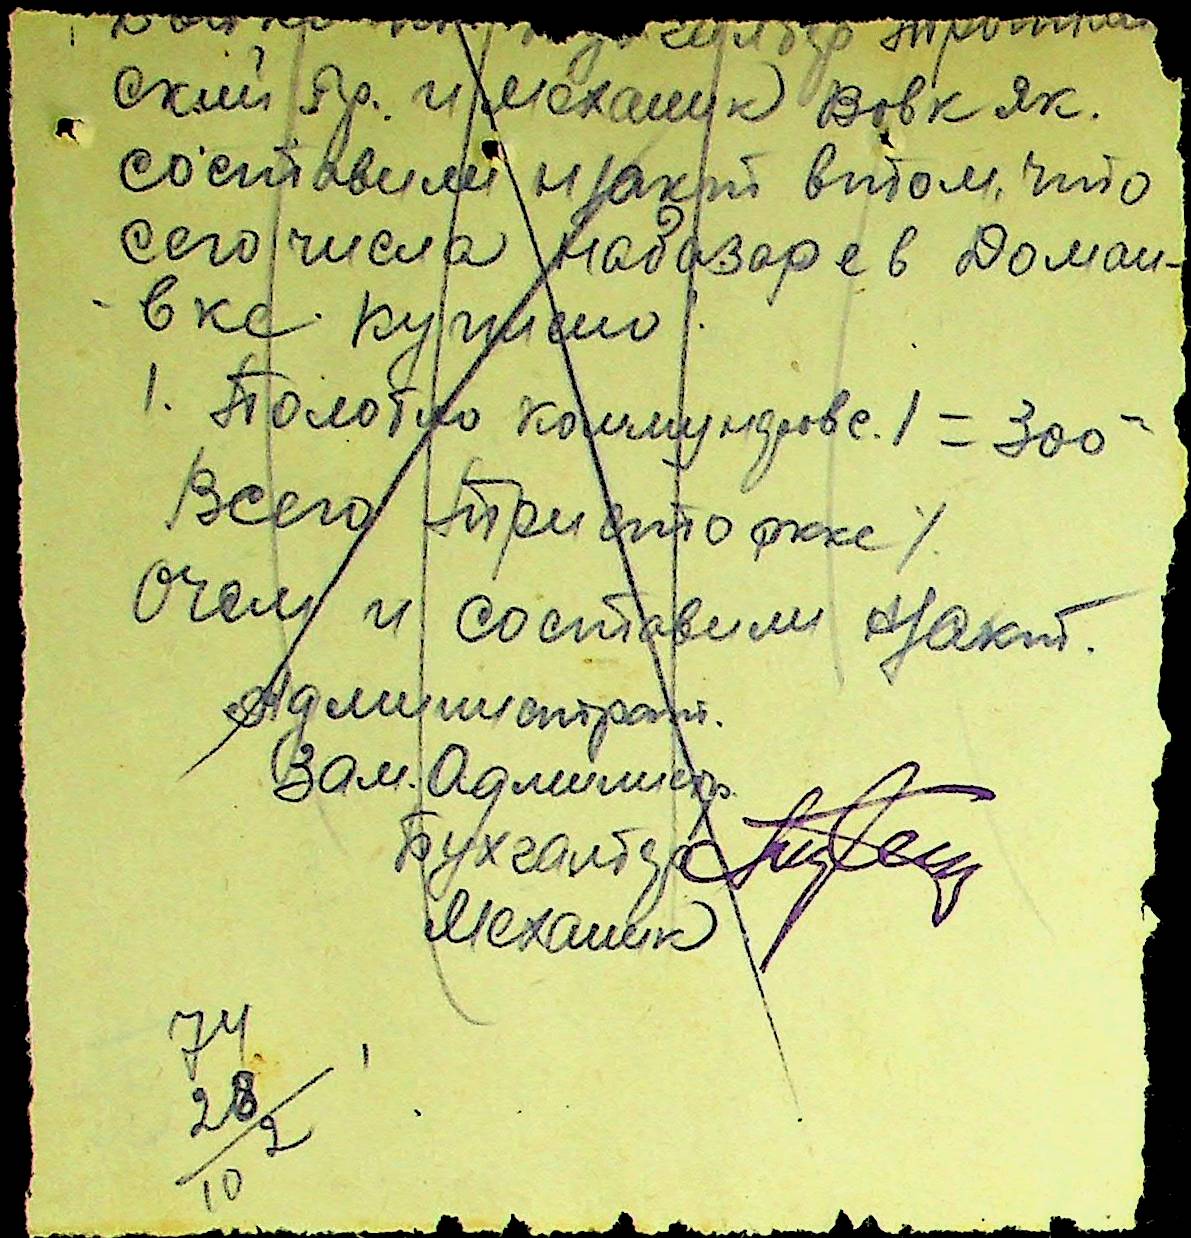 бухгалтер
ский Гр. и Механик Вовк Як.
составили н/акт втом, что
сего числа набазаре в Доман-
-вке. купило:
1. Полотно 1 = 300-
Всего Тристо ркке /.
Очем и составили н/акт.
Администрат.
Зам. Администр.
Бухгалтер
Механик
74
28/2
10